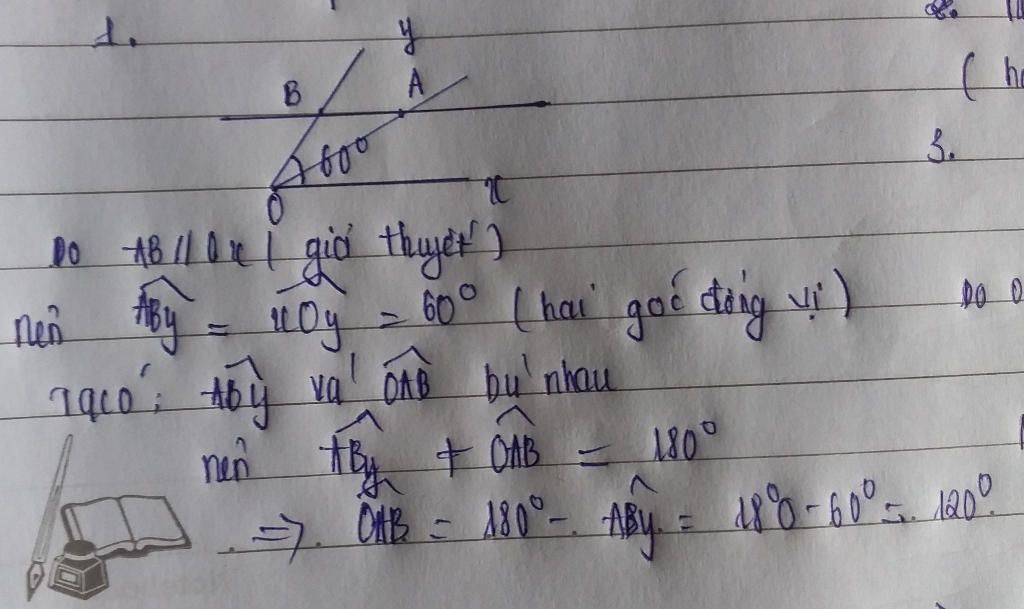 1.
y
B A
60°
O x
Do AB // Ox ( giả thuyết )
nên ABy = xOy = 60° ( hai góc đồng vị )
Ta có : ABy và OAB bù nhau
nên ABy + OAB = 180°
=> OAB = 180° - ABy = 180 - 60° = 120°.
3.
Do O